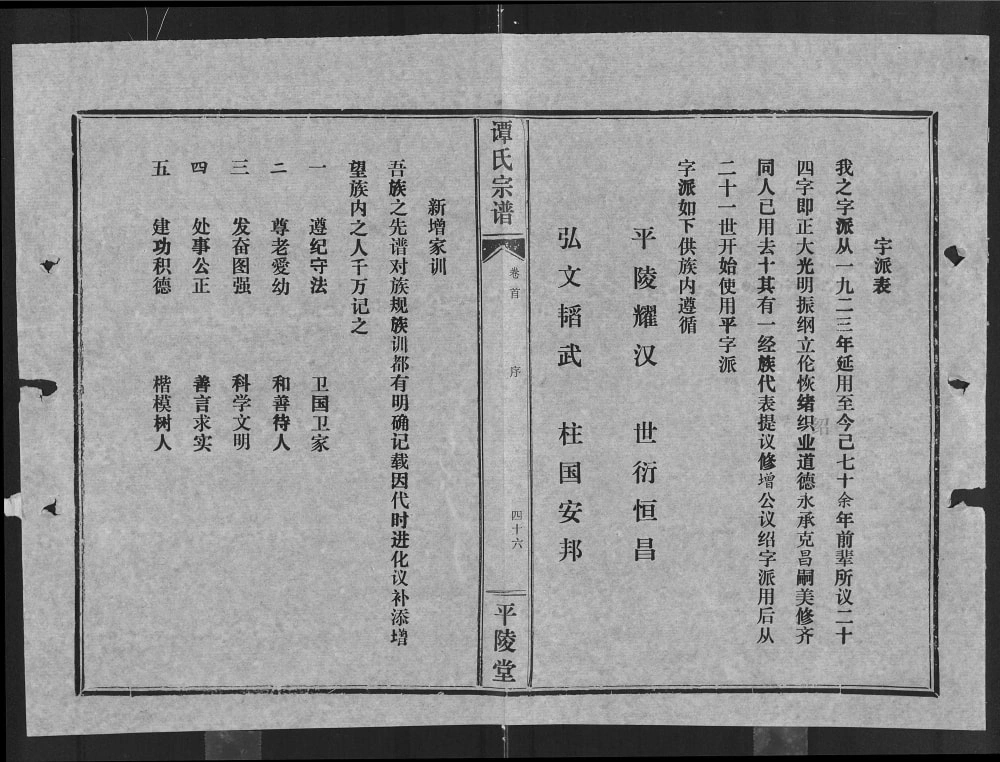 字派表
我之字派从一九二三年延用至今己七十余年前辈所议二十
四字即正大光明振纲立伦恢绪织业道德永承克昌嗣美修齐
绍
同人已用去十其有一经族代表提议修增公议绍字派用后从
二十一世开始使用平字派
字派如下供族内遵循
平陵耀汉 世衍恒昌
弘文韬武 柱国安邦
谭氏宗谱 卷首 序 四十六 平陵堂
新增家训
吾族之先谱对族规族训都有明确记载因代时进化议补添增
望族内之人千万记之
一 遵纪守法 卫国卫家
二 尊老愛幼 和善待人
三 发奋图强 科学文明
四 处事公正 善言求实
五 建功积德 楷模树人